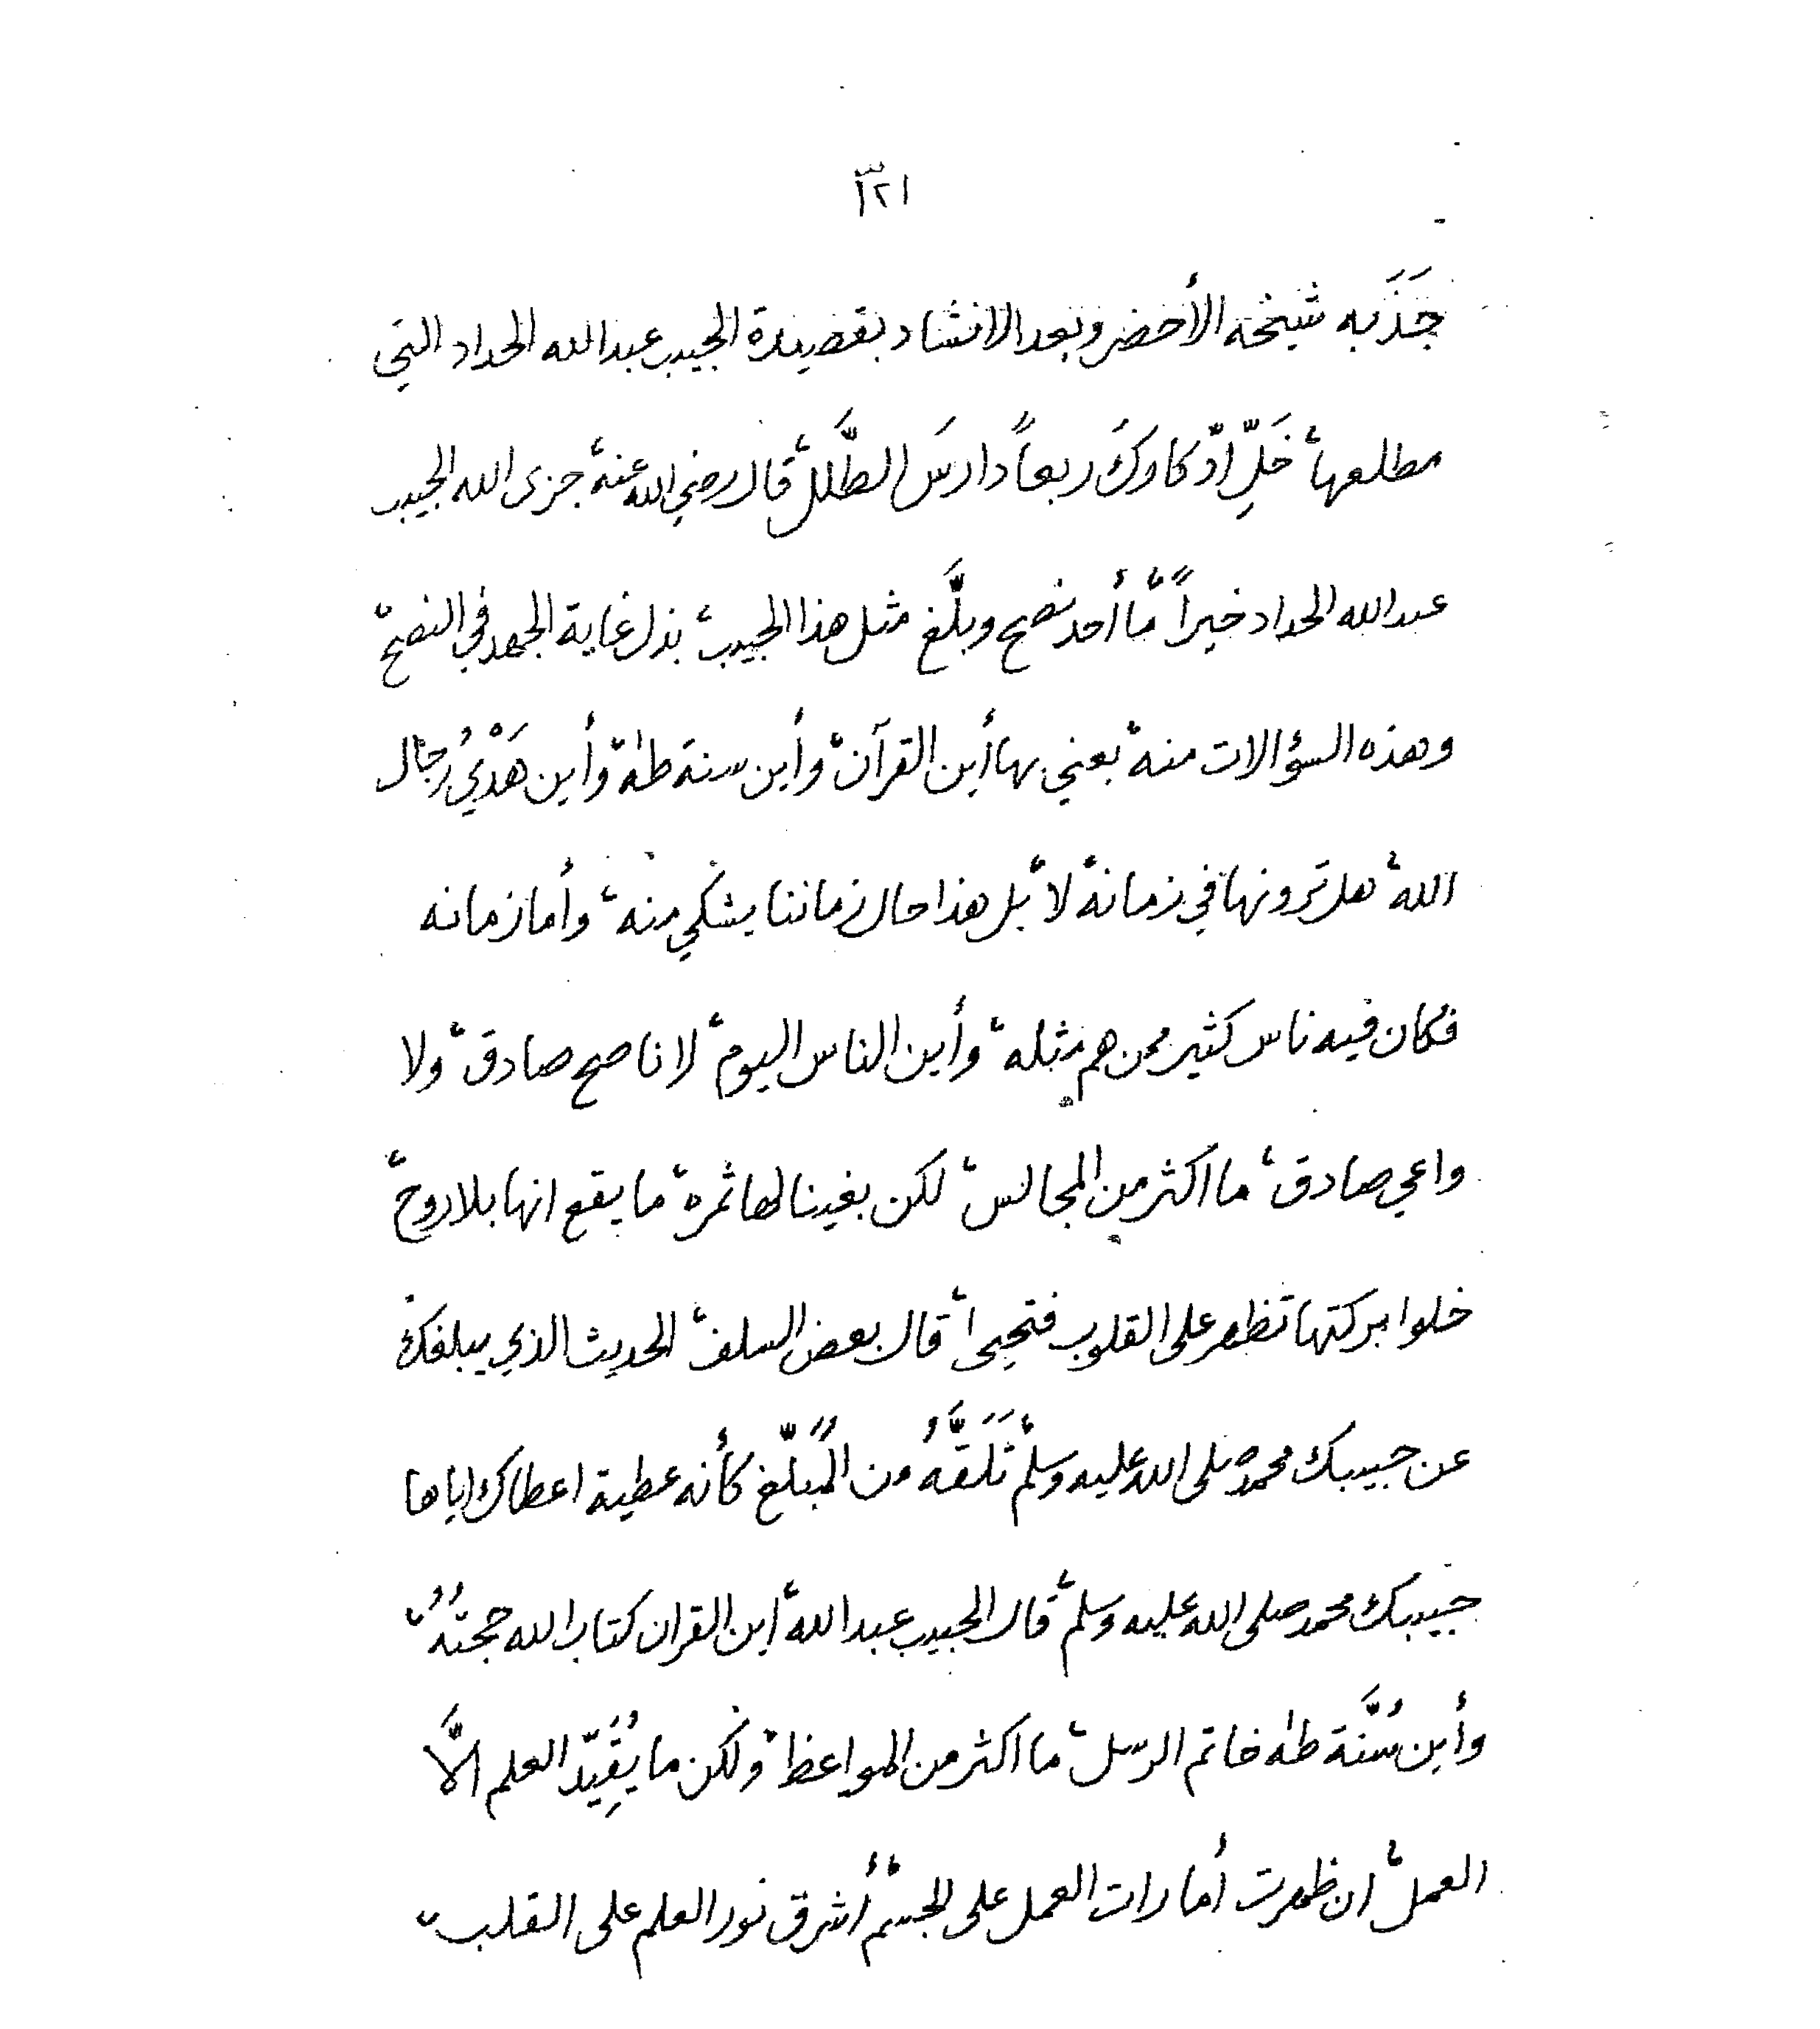 ١٣٢١
جَذَبَه شيخه الأحضر وبعد الانشاد بقصيدة الحبيب عبدالله الحداد التي
مطلعها، خَلِّ ادّكارَكَ ربعاً دارسَ الطَّلل، قال رضي الله عنه، جزى الله الحبيب
عبدالله الحداد خيراً، ما أحد نصح وبلَّغ مثل هذا الحبيب، بذل غاية الجهد في النصح،
وهذه السؤالات منه، يعني بها أين القرآن، وأين سنة طه، وأين هَدْيُ رجال
الله، هل ترونها في زمانه، لا، بل هذا حال زماننا يشكي منه، وأما زمانه
فكان فيه ناس كثير ممن هم مثله، وأين الناس اليوم، لا ناصح صادق، ولا
واعي صادق، ما اكثر من المجالس، لكن بغينا لها ثمره، ما يقع انها بلا روح،
خلوا بركتها تظهر على القلوب فتحيى، قال بعض السلف، الحديث الذي يبلغك
عن حبيبك محمد صلى الله عليه وسلم، تَلَقَّهُ من المُبَلِّغ كأنه عطية اعطاك اياها
حبيبك محمد صلى الله عليه وسلم، قال الحبيب عبدالله، اين القران كتاب الله حجتُهُ،
وأين سُنَّة طه خاتم الرسل، ما اكثر من المواعظ، ولكن ما يُقَيِّد العلم الَّا
العمل، ان ظهرت أمارات العمل على الجسم، أشرق نور العلم على القلب،